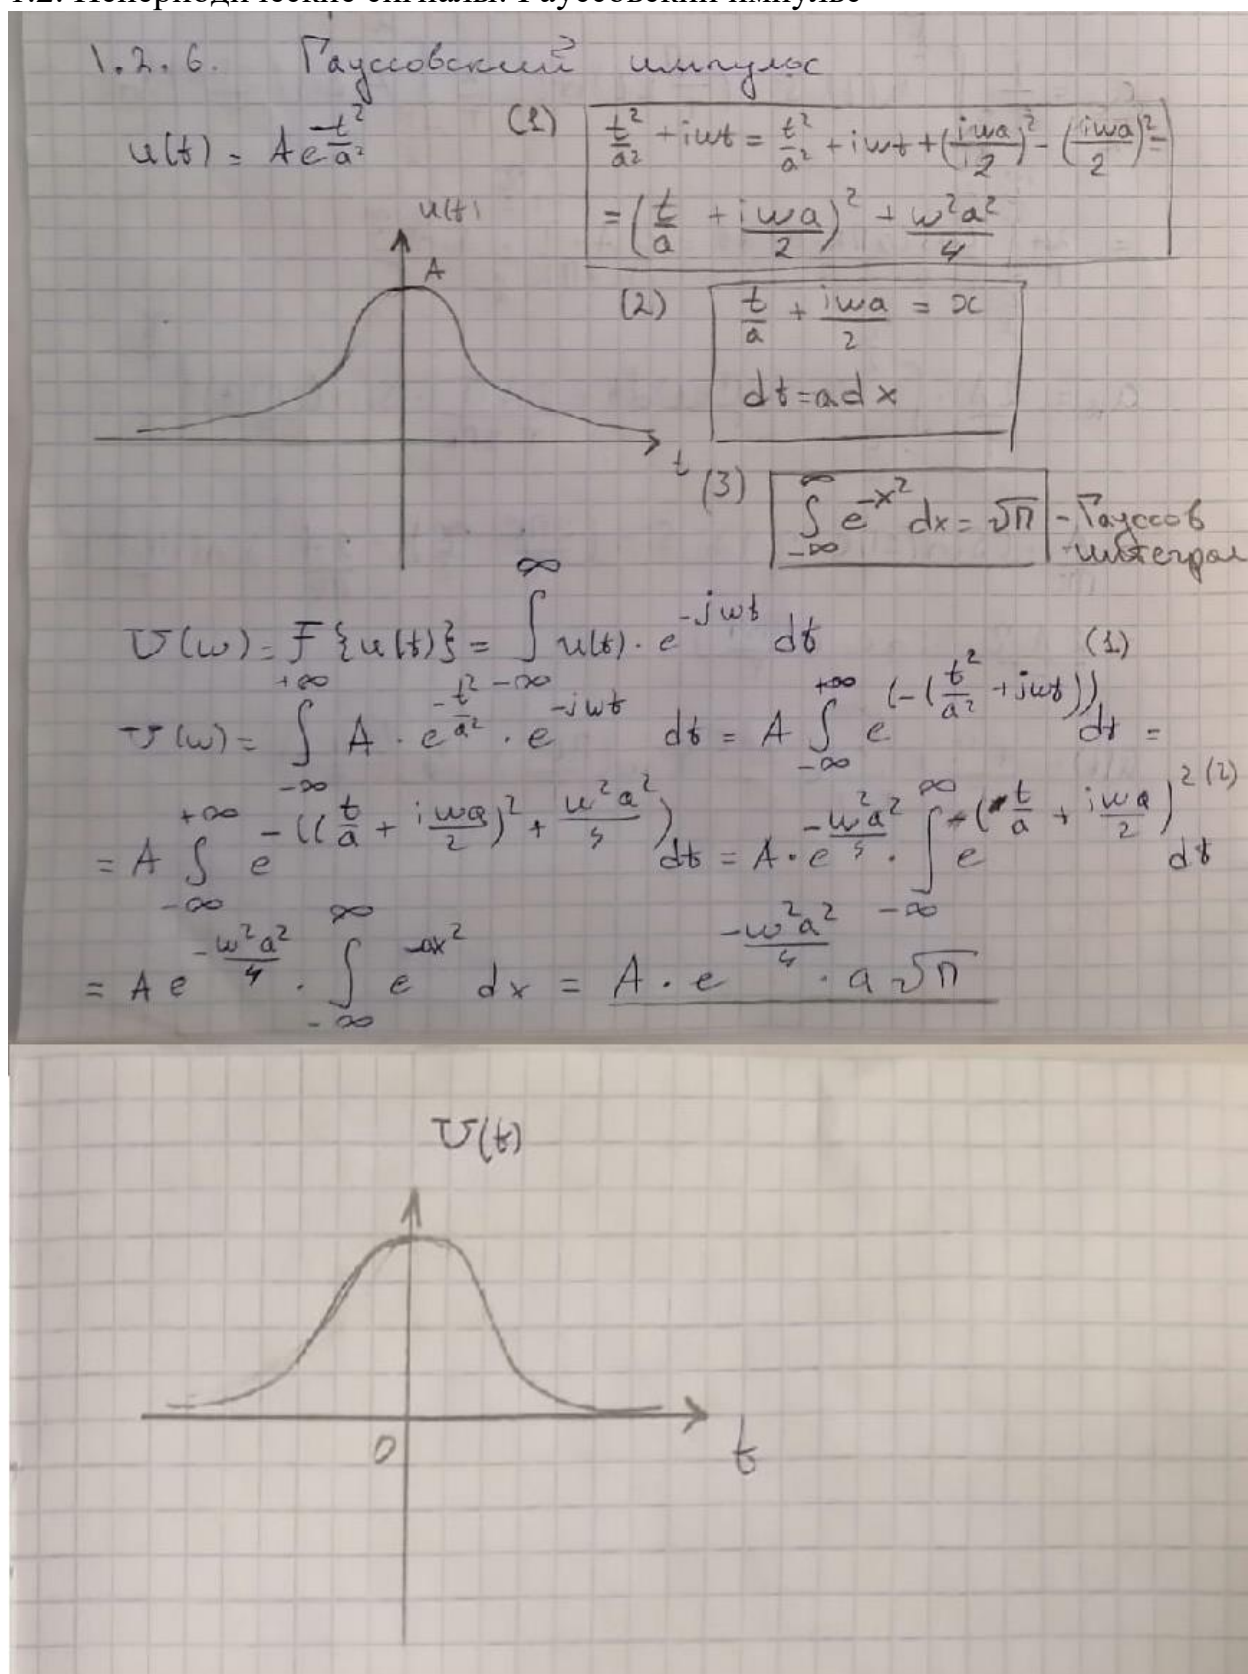 1.2. Непериодические сигналы. Гауссовский импульс
1.2.6. Гауссовский импульс
u(t) = A e^{-t²/a²}
(1) t²/a² + iωt = t²/a² + iωt + (iωa/2)² - (iωa/2)² =
= (t/a + iωa/2)² + ω²a²/4
u(t)
A
t
(2) t/a + iωa/2 = x
dt = a dx
(3) ∫_{-∞}^{∞} e^{-x²} dx = √π - Гауссов
интеграл
U(ω) = F{u(t)} = ∫_{-∞}^{∞} u(t) · e^{-jωt} dt
(1)
U(ω) = ∫_{-∞}^{+∞} A · e^{-t²/a²} · e^{-jωt} dt = A ∫_{-∞}^{+∞} e^{(-(t²/a² + jωt))} dt =
= A ∫_{-∞}^{+∞} e^{-((t/a + iωa/2)² + ω²a²/4)} dt = A · e^{-ω²a²/4} · ∫_{-∞}^{∞} e^{-(t/a + iωa/2)²} dt (2)
= A e^{-ω²a²/4} · ∫_{-∞}^{∞} e^{-ax²} dx = A · e^{-ω²a²/4} · a√π
U(t)
0
t